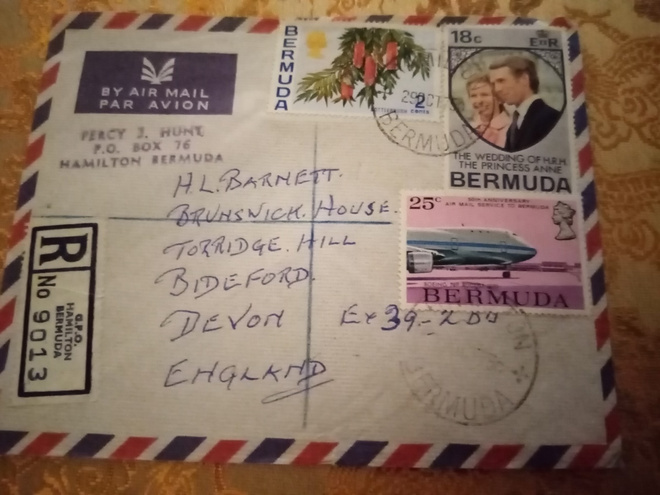 BY AIR MAIL
PAR AVION
PERCY J. HUNT,
P.O. BOX 76
HAMILTON BERMUDA
BERMUDA
2c
18c
E II R
THE WEDDING OF H.R.H.
THE PRINCESS ANNE
BERMUDA
25c
50TH ANNIVERSARY
AIR MAIL SERVICE TO BERMUDA
BERMUDA
29 OCT
BERMUDA
H.L. BARNETT.
BRUNSWICK. HOUSE.
TORRIDGE. HILL
BIDEFORD.
DEVON
ENGLAND
R
No 9013
G.P.O.
HAMILTON
BERMUDA
BERMUDA